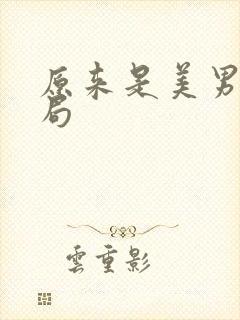 原来是美男
局
雲重影